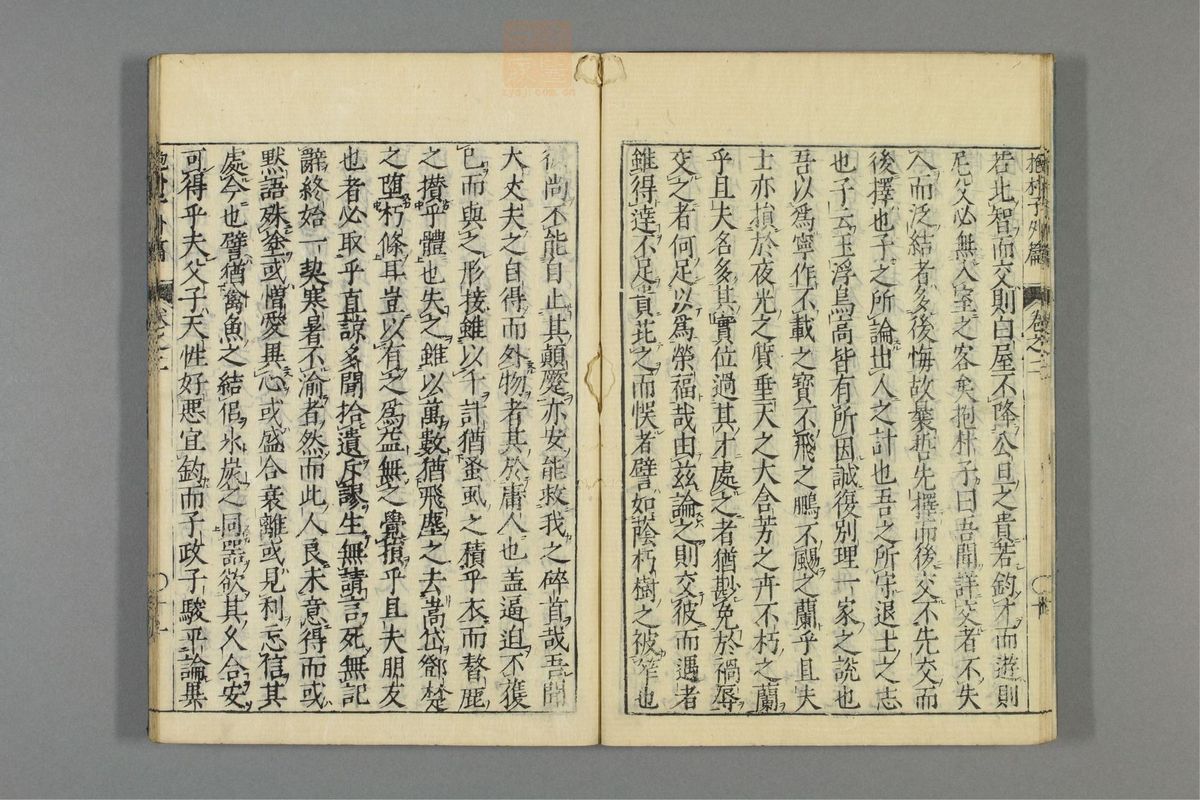 抱朴子外篇 卷之二 〇十
若比智而交則白屋不降公旦之貴若鈞才而遊則
尼父必無入室之客矣抱朴子曰吾聞詳交者不失
人而泛結者多後悔故曩哲先擇而後交不先交而
後擇也子之所論出人之計也吾之所守退士之志
也子云玉浮鳥高皆有所因誠復別理一家之說也
吾以為寧作不載之寶不飛之鵬不颺之蘭乎且夫
士亦損於夜光之質垂天之大含芳之卉不朽之蘭
乎且夫名多其實位過其才處之者猶尠免於禍辱
交之者何足以為榮福哉由茲論之則交彼而遇者
雖得達不足貴芘之而悞者譬如蔭朽樹之被笮也
彼尚不能自止其顛蹷亦安能救我之碎首哉吾聞
大丈夫之自得而外物者其於庸人也盖逼迫不獲
已而與之形接雖以千計猶蚤虱之積乎衣而贅疣
之攅乎體也失之雖以萬數猶飛塵之去嵩岱鄧楚
之墮朽條耳豈以有之為益無之覺損乎且夫朋友
也者必取乎直諒多聞拾遺斥謬生無請言死無託
辭終始一契寒暑不渝者然而此人良未意得而或
默語殊塗或憎愛異心或盛合衰離或見利忘信其
處今也譬猶禽魚之結侶氷炭之同器欲其久合安
可得乎夫父子天性好惡宜鈞而子政子駿平論異
卷之二 〇十一